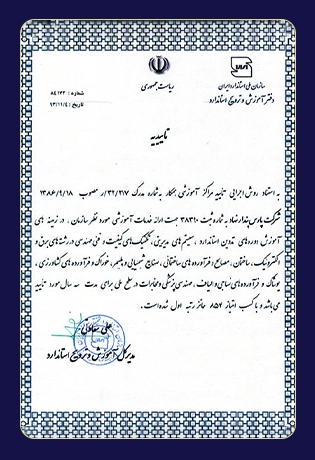 ریاست جمهوری
سازمان ملی استاندارد ایران
دفتر آموزش و ترویج استاندارد
شماره : ۸۴۱۲۳
تاریخ : ۹۳/۱۱/۴
تاییدیه
به استناد روش اجرایی تأیید مراکز آموزشی همکار به شماره مدرک ۳۲/۲۱۷/ر مصوب ۱۳۸۶/۹/۱۸
شرکت پارس پندار نهاد به شماره ثبت ۳۸۳۱۰ جهت ارائه خدمات آموزشی مورد نظر سازمان ، در زمینه های
آموزش دوره های تدوین استاندارد ، سیستم های مدیریتی ، تکنیک های کیفیت و فنی مهندسی در رشته های برق و
الکترونیک ، ساختمان ، مصالح و فرآورده های ساختمانی ، صنایع شیمیایی و پلیمر ، خوراک و فرآورده های کشاورزی ،
پوشاک و فرآورده های نساجی و الیاف ، مهندسی پزشکی و مخابرات در سطح ملی برای مدت سه سال مورد تایید
می باشد و با کسب امتیاز ۸۵۲ حائز رتبه اول شده است.
مدیر کل آموزش و ترویج استاندارد